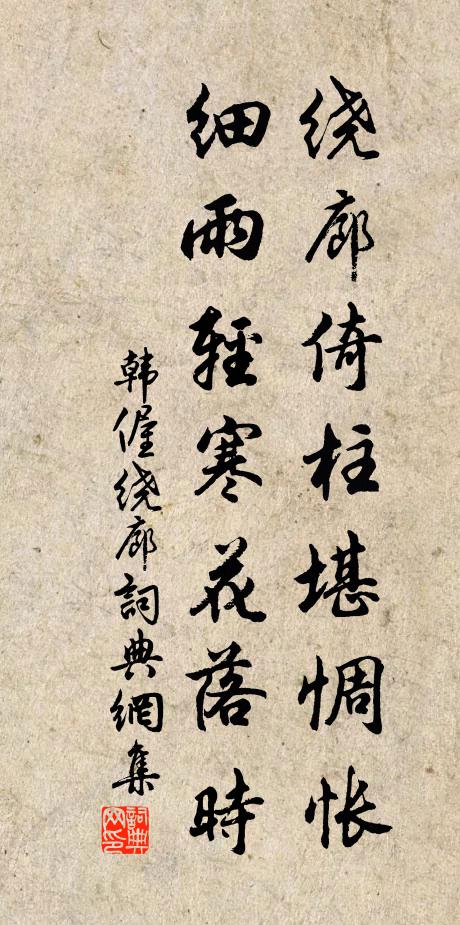 绕廊倚柱堪惆怅
细雨轻寒花落时
韩偓绕廊詞典網集
詞典网印